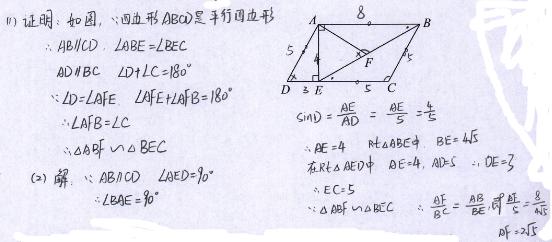 (1) 证明: 如图, ∵四边形ABCD是平行四边形
∴ AB∥CD ∠ABE=∠BEC
AD∥BC ∠D+∠C=180°
∵ ∠D=∠AFE ∠AFE+∠AFB=180°
∴ ∠AFB=∠C
∴ △ABF∽△BEC
(2) 解: ∵ AB∥CD ∠AED=90°
∴ ∠BAE=90°
A 8 B
5 4 F 5
D 3 E 5 C
sinD=AE/AD=AE/5=4/5
∴ AE=4 Rt△ABE中 BE=4√5
在Rt△AED中 AE=4, AD=5 ∴ DE=3
∴ EC=5
∵ △ABF∽△BEC ∴ AF/BC=AB/BE,即AF/5=8/4√5
AF=2√5